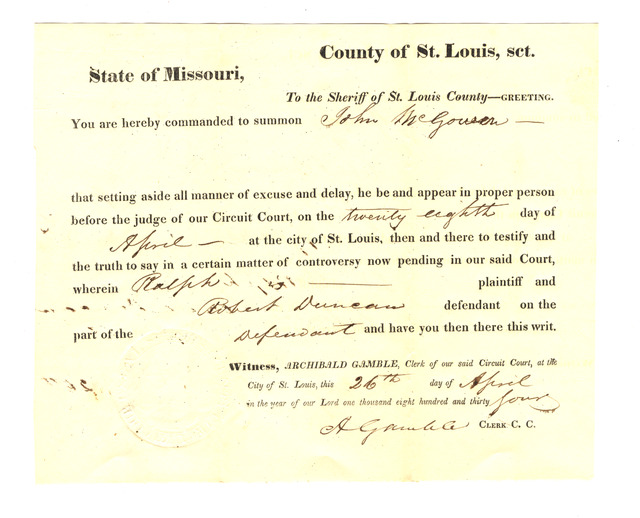 County of St. Louis, sct.
State of Missouri,
To the Sheriff of St. Louis County—GREETING.
You are hereby commanded to summon John McGowen —
that setting aside all manner of excuse and delay, he be and appear in proper person
before the judge of our Circuit Court, on the twenty eighth day of
April — at the city of St. Louis, then and there to testify and
the truth to say in a certain matter of controversy now pending in our said Court,
wherein Ralph — plaintiff and
Robert Duncan defendant on the
part of the Defendant and have you then there this writ.
Witness, ARCHIBALD GAMBLE, Clerk of our said Circuit Court, at the
City of St. Louis, this 26th day of April
in the year of our Lord one thousand eight hundred and thirty four
A Gamble CLERK C. C.